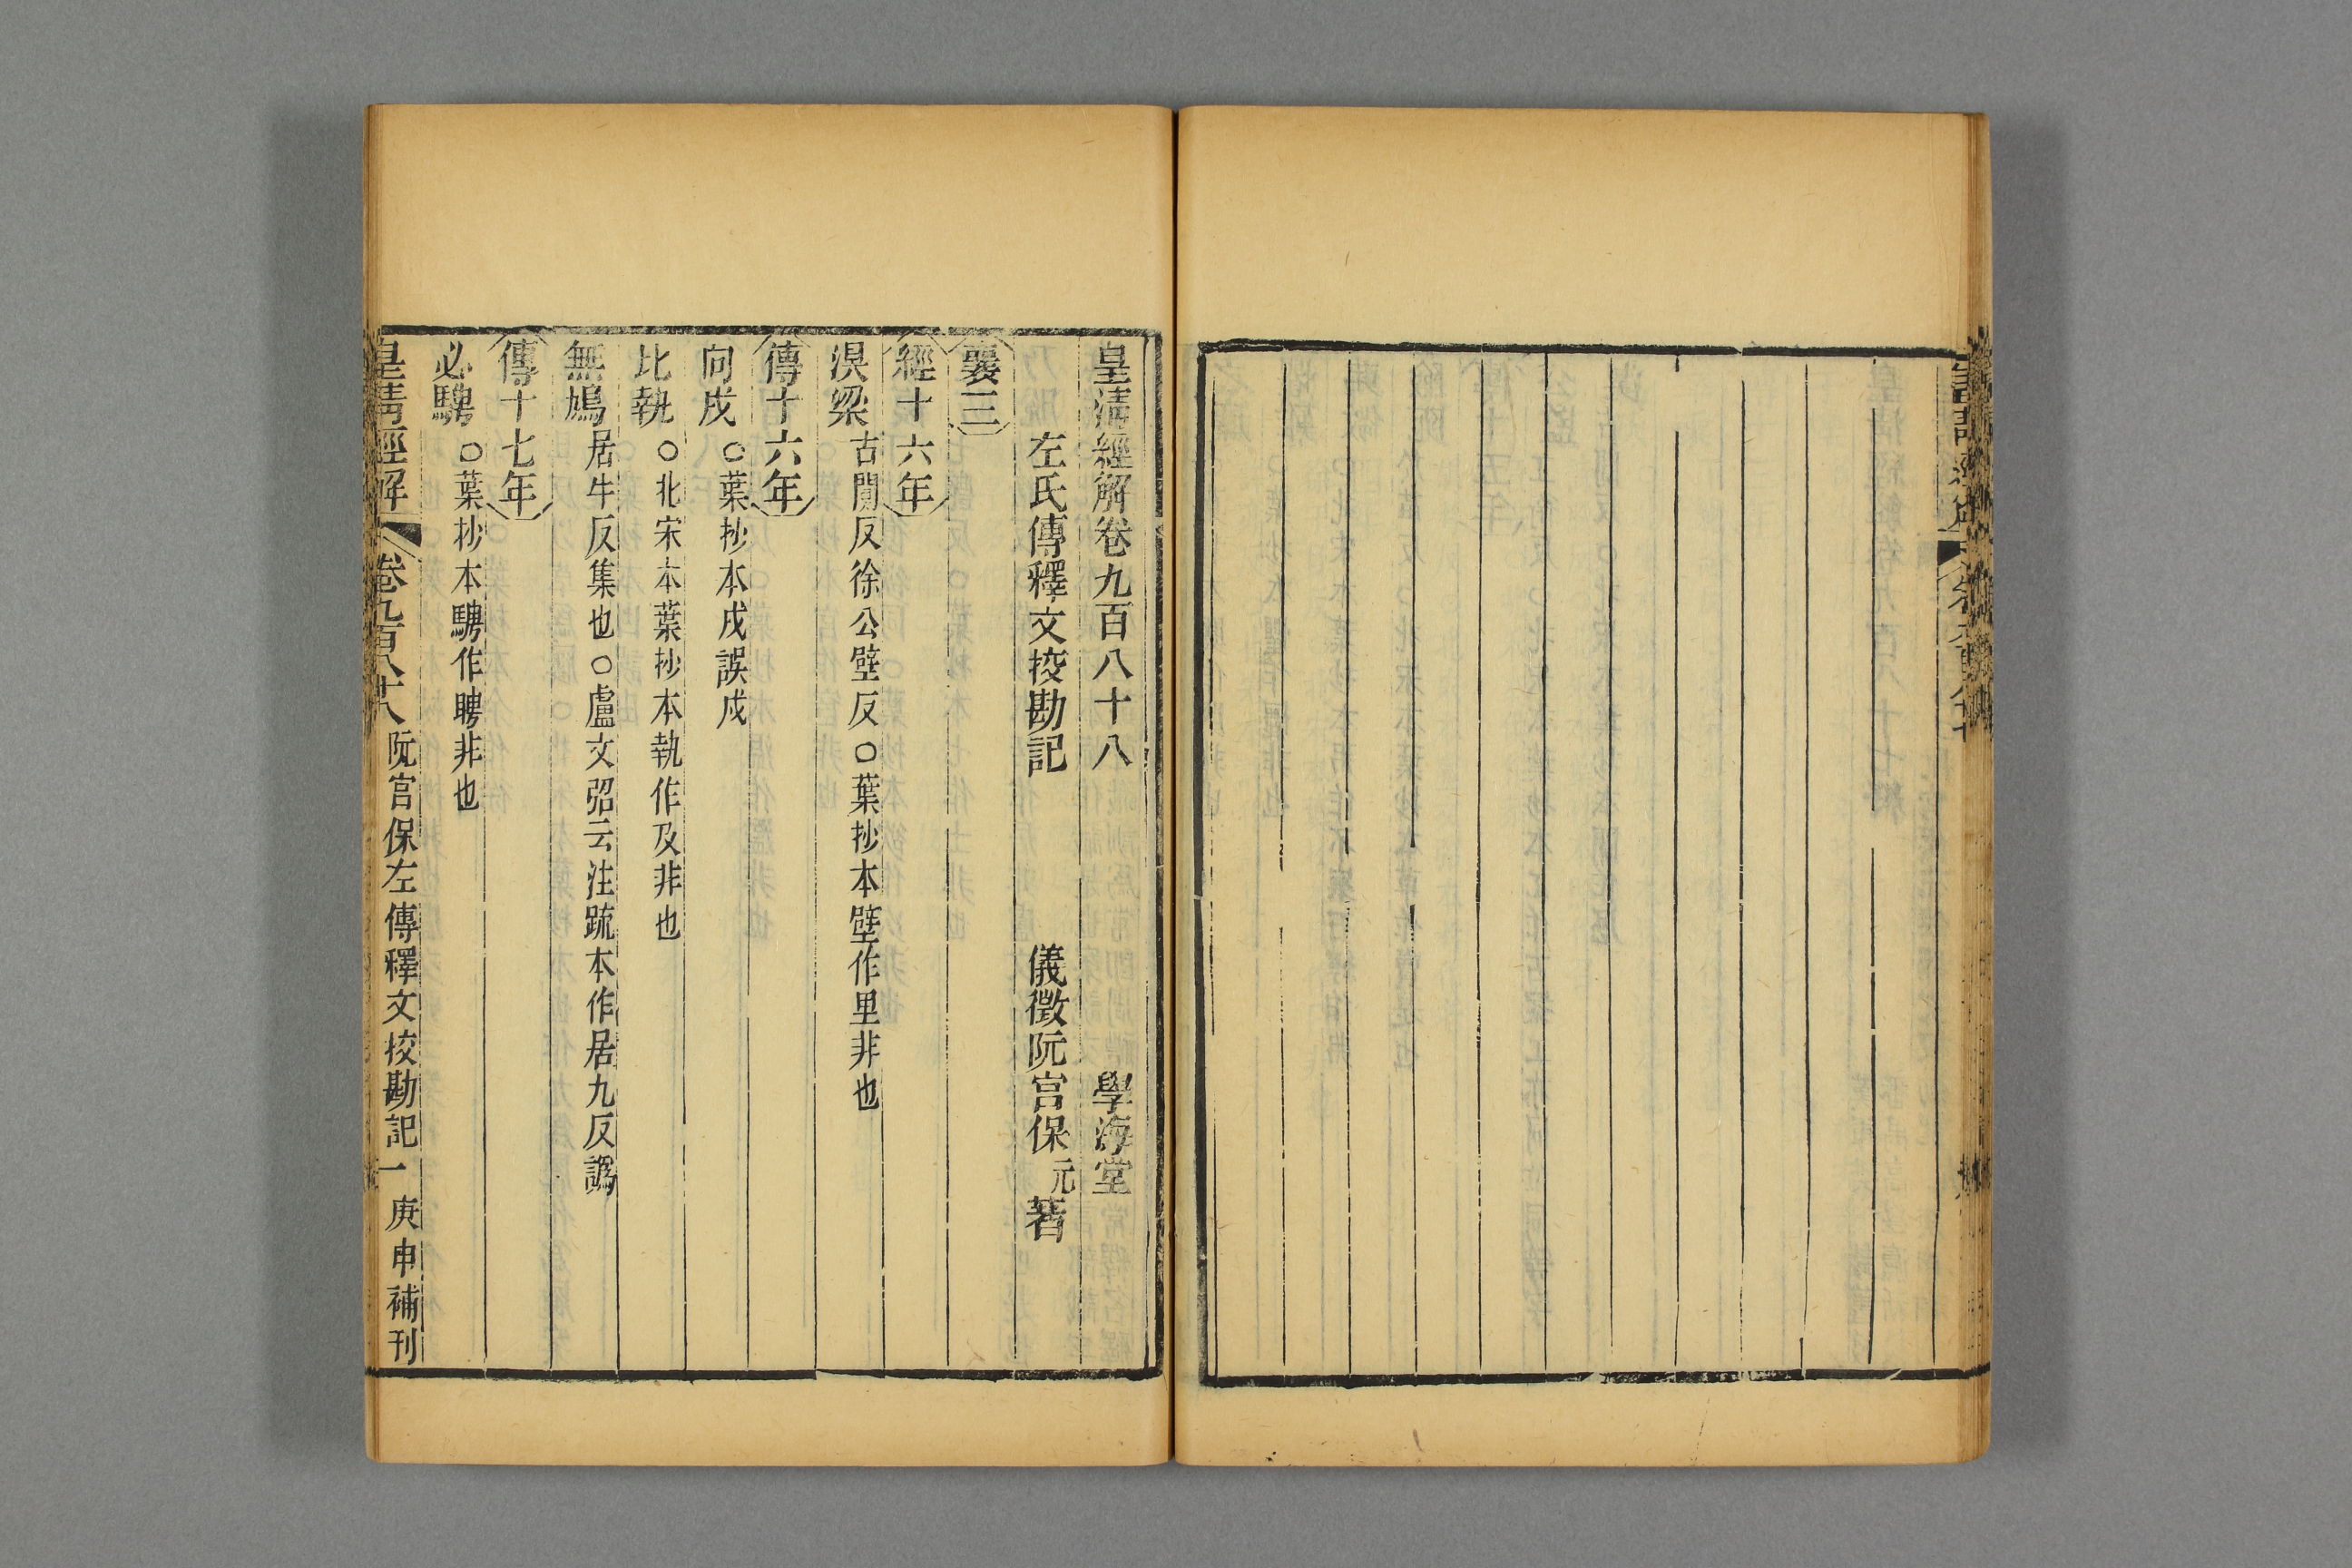 皇清經解卷九百八十八 學海堂
左氏傳釋文挍勘記 儀徵阮宮保元著
襄三
經十六年
湨梁 古闃反徐公壁反○葉抄本壁作里非也
傳十六年
向戌 ○葉抄本戌誤戍
比執 ○北宋本葉抄本執作及非也
無鳩 居牛反集也○盧文弨云注疏本作居九反譌
傳十七年
必騁 ○葉抄本騁作聘非也
皇清經解 卷九百八十八 阮宮保左傳釋文挍勘記 一 庚申補刊